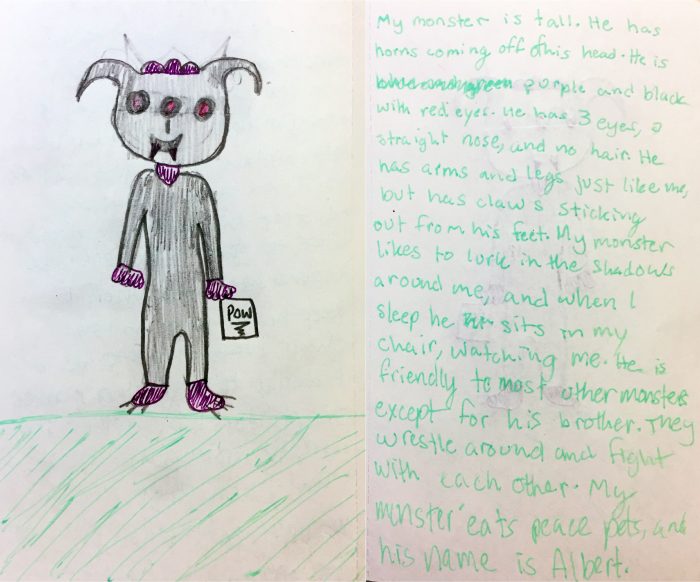 POW
My monster is tall. He has
horns coming off of his head. He is
purple and black
with red eyes. He has 3 eyes, a
straight nose, and no hair. He
has arms and legs just like me,
but has claws sticking
out from his feet. My monster
likes to lurk in the shadows
around me, and when I
sleep he sits in my
chair, watching me. He is
friendly to most other monsters
except for his brother. They
wrestle around and fight
with each other. My
monster eats peace pets, and
his name is Albert.